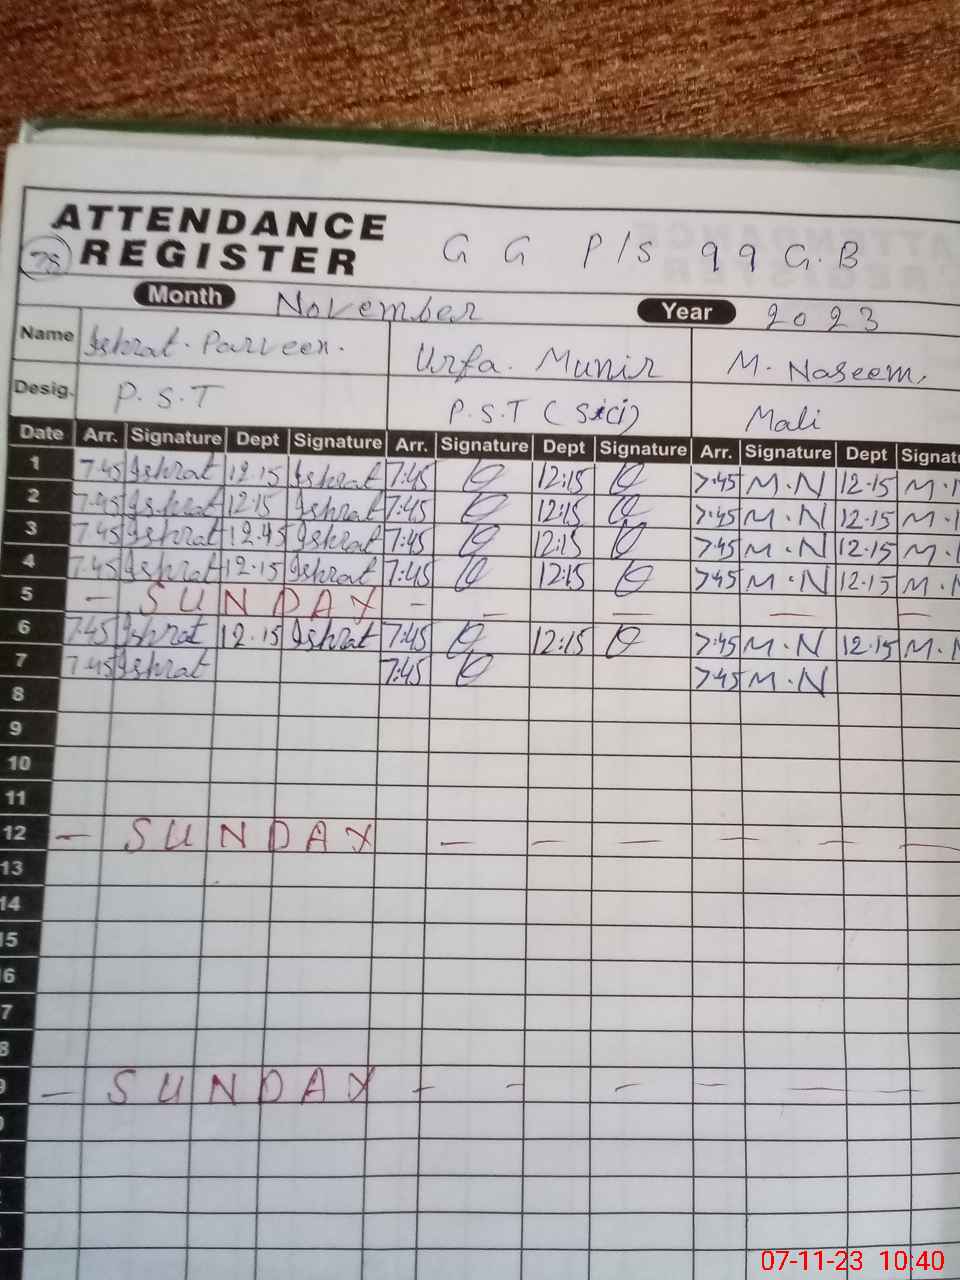 ATTENDANCE
REGISTER G G P/S 99 G.B
78
Month November Year 2023
Name Ishrat. Parveen. Urfa. Munir M. Naseem.
Desig. P.S.T P.S.T (Sici) Mali
Date Arr. Signature Dept Signature Arr. Signature Dept Signature Arr. Signature Dept Signatu
1 7:45 Ishrat 12.15 Ishrat 7:45 12:15 7.45 M.N 12.15 M.
2 7.45 Ishrat 12.15 Ishrat 7:45 12:15 7.45 M.N 12.15 M.
3 7.45 Ishrat 12.45 Ishrat 7:45 12:15 7.45 M.N 12.15 M.
4 7.45 Ishrat 12.15 Ishrat 7:45 12:15 7.45 M.N 12.15 M.N
5 - SUNDAY - - - - -
6 7.45 Ishrat 12.15 Ishrat 7:45 12:15 7.45 M.N 12.15 M.N
7 7.45 Ishrat 7:45 7.45 M.N
8
9
10
11
12 - SUNDAY - - - - - -
13
14
15
6
7
8
9 - SUNDAY - - - - - -
07-11-23 10:40